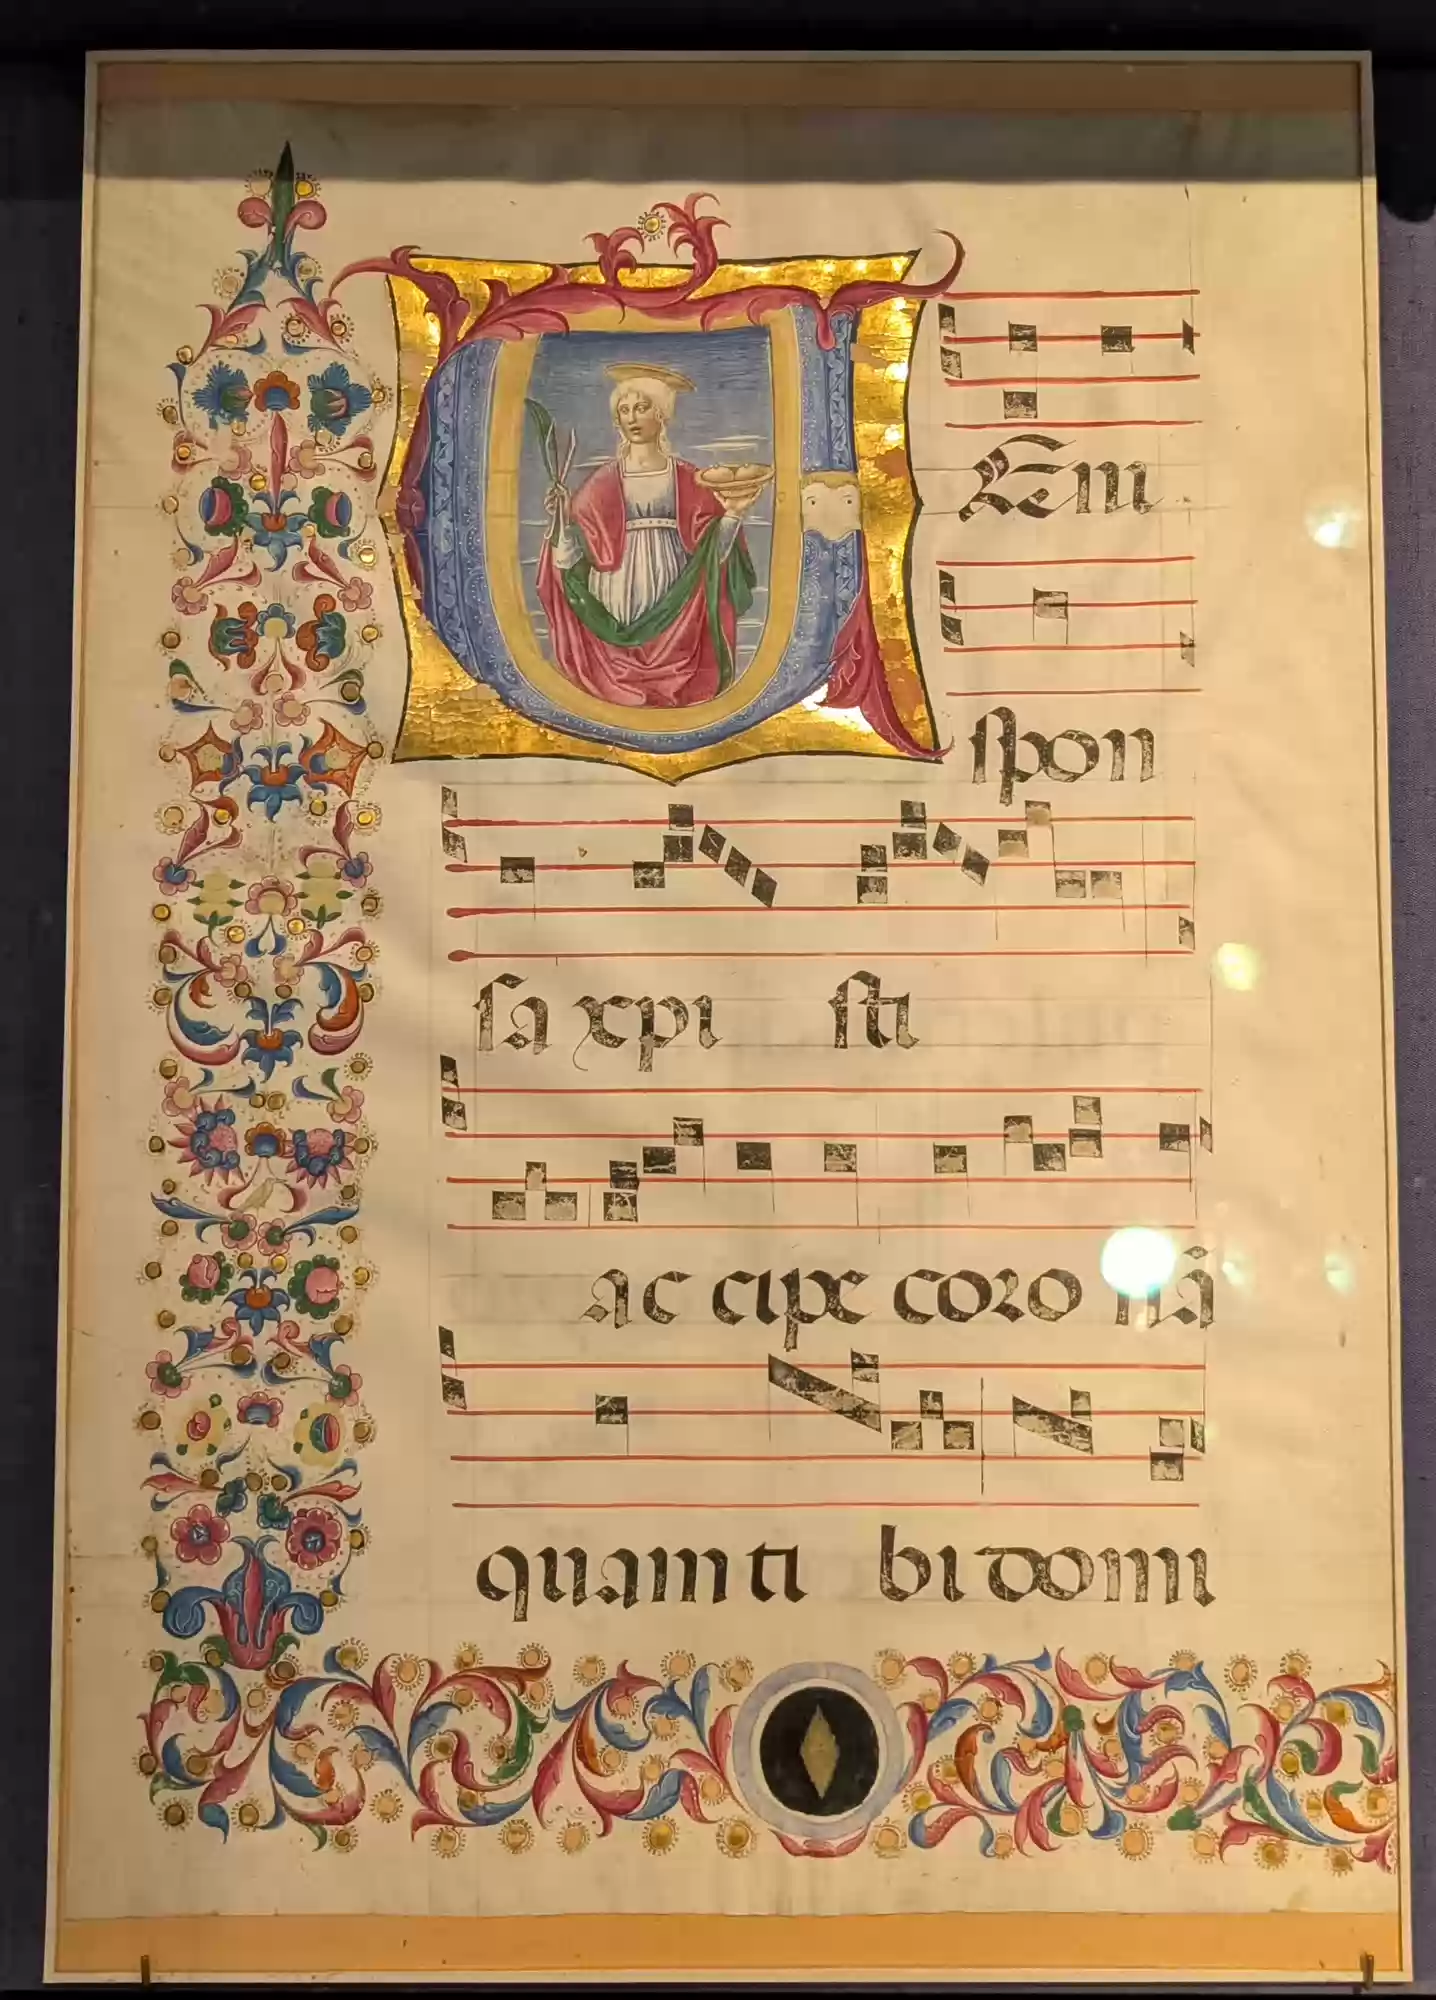 VEni
ſpon
ſa xpi ſti
ac cipe coro nā
quam ti bi domi